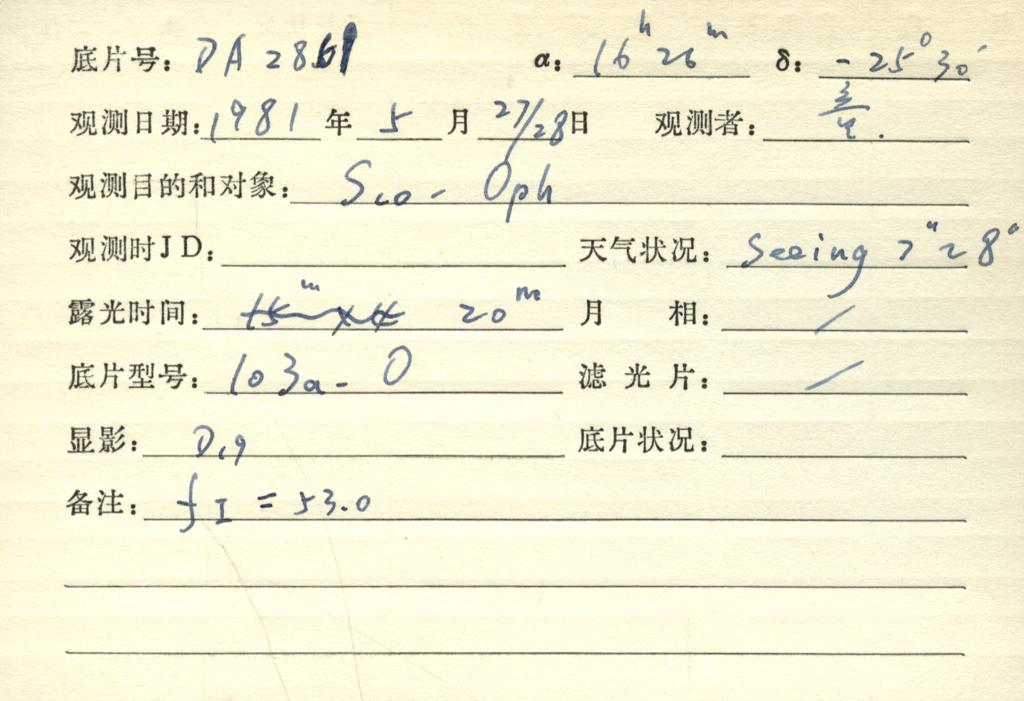 底片号: DA 2861 α: 16ʰ 26ᵐ δ: -25° 30′
观测日期: 1981 年 5 月 27/28 日 观测者:
观测目的和对象: Sco - Oph
观测时JD: 天气状况: Seeing 7"~8"
露光时间: 15ᵐ×4 20ᵐ 月 相: /
底片型号: 103a-O 滤光片: /
显影: D19 底片状况:
备注: f I = 53.0